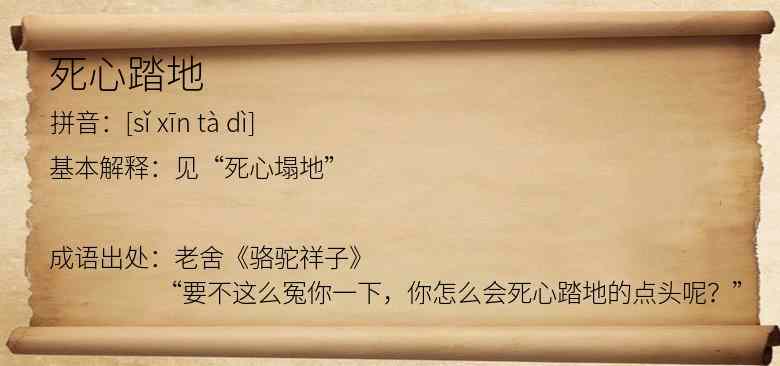 死心踏地
拼音：[sǐ xīn tà dì]
基本解释：见“死心塌地”
成语出处：老舍《骆驼祥子》
“要不这么冤你一下，你怎么会死心踏地的点头呢？”